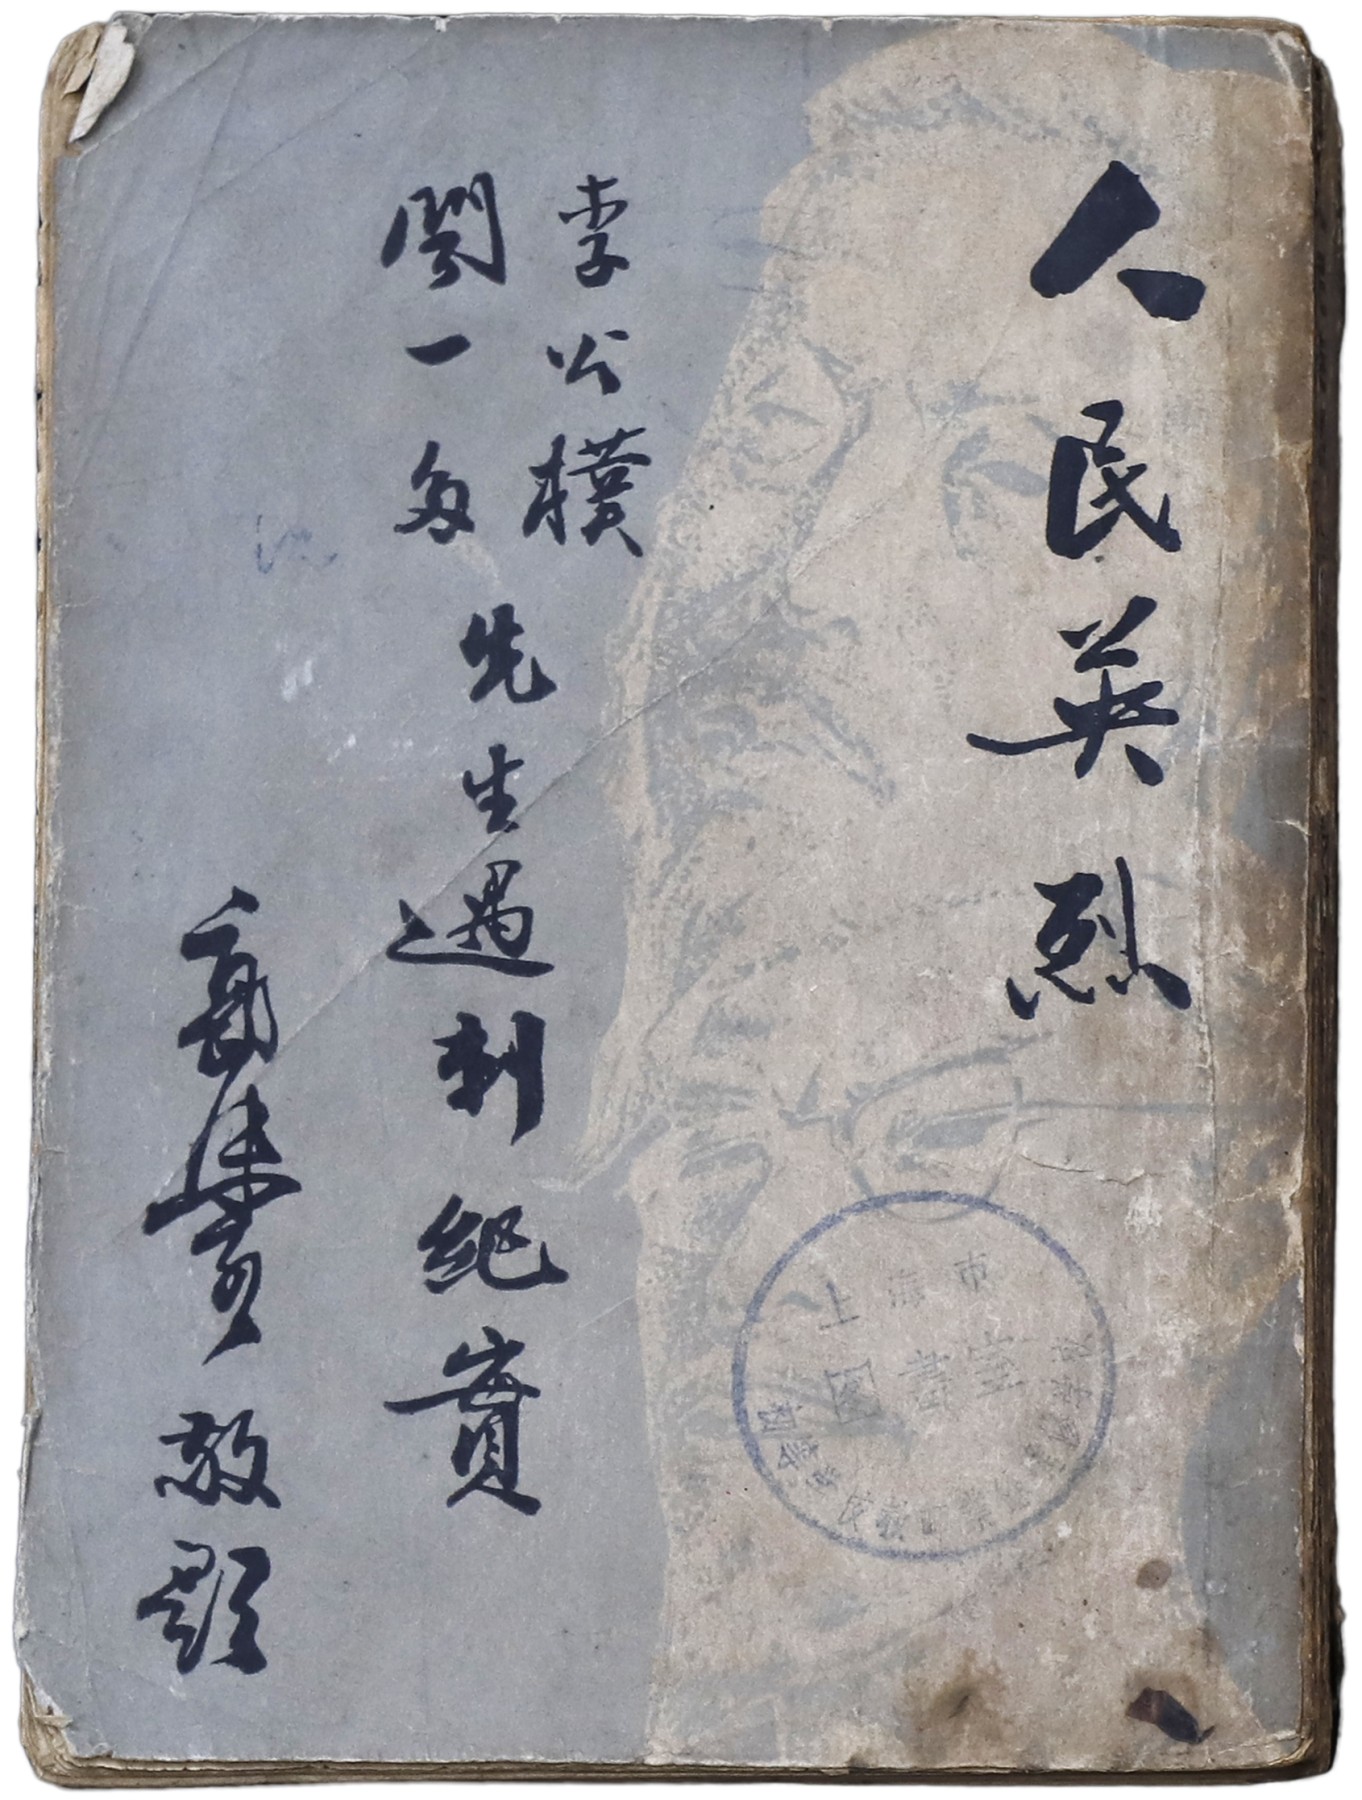 人民英烈
李公樸
聞一多
先生遇刺紀實
郭沫若敬題
上海市
圖書室